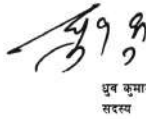 ध्रुव कुमा
सदस्य